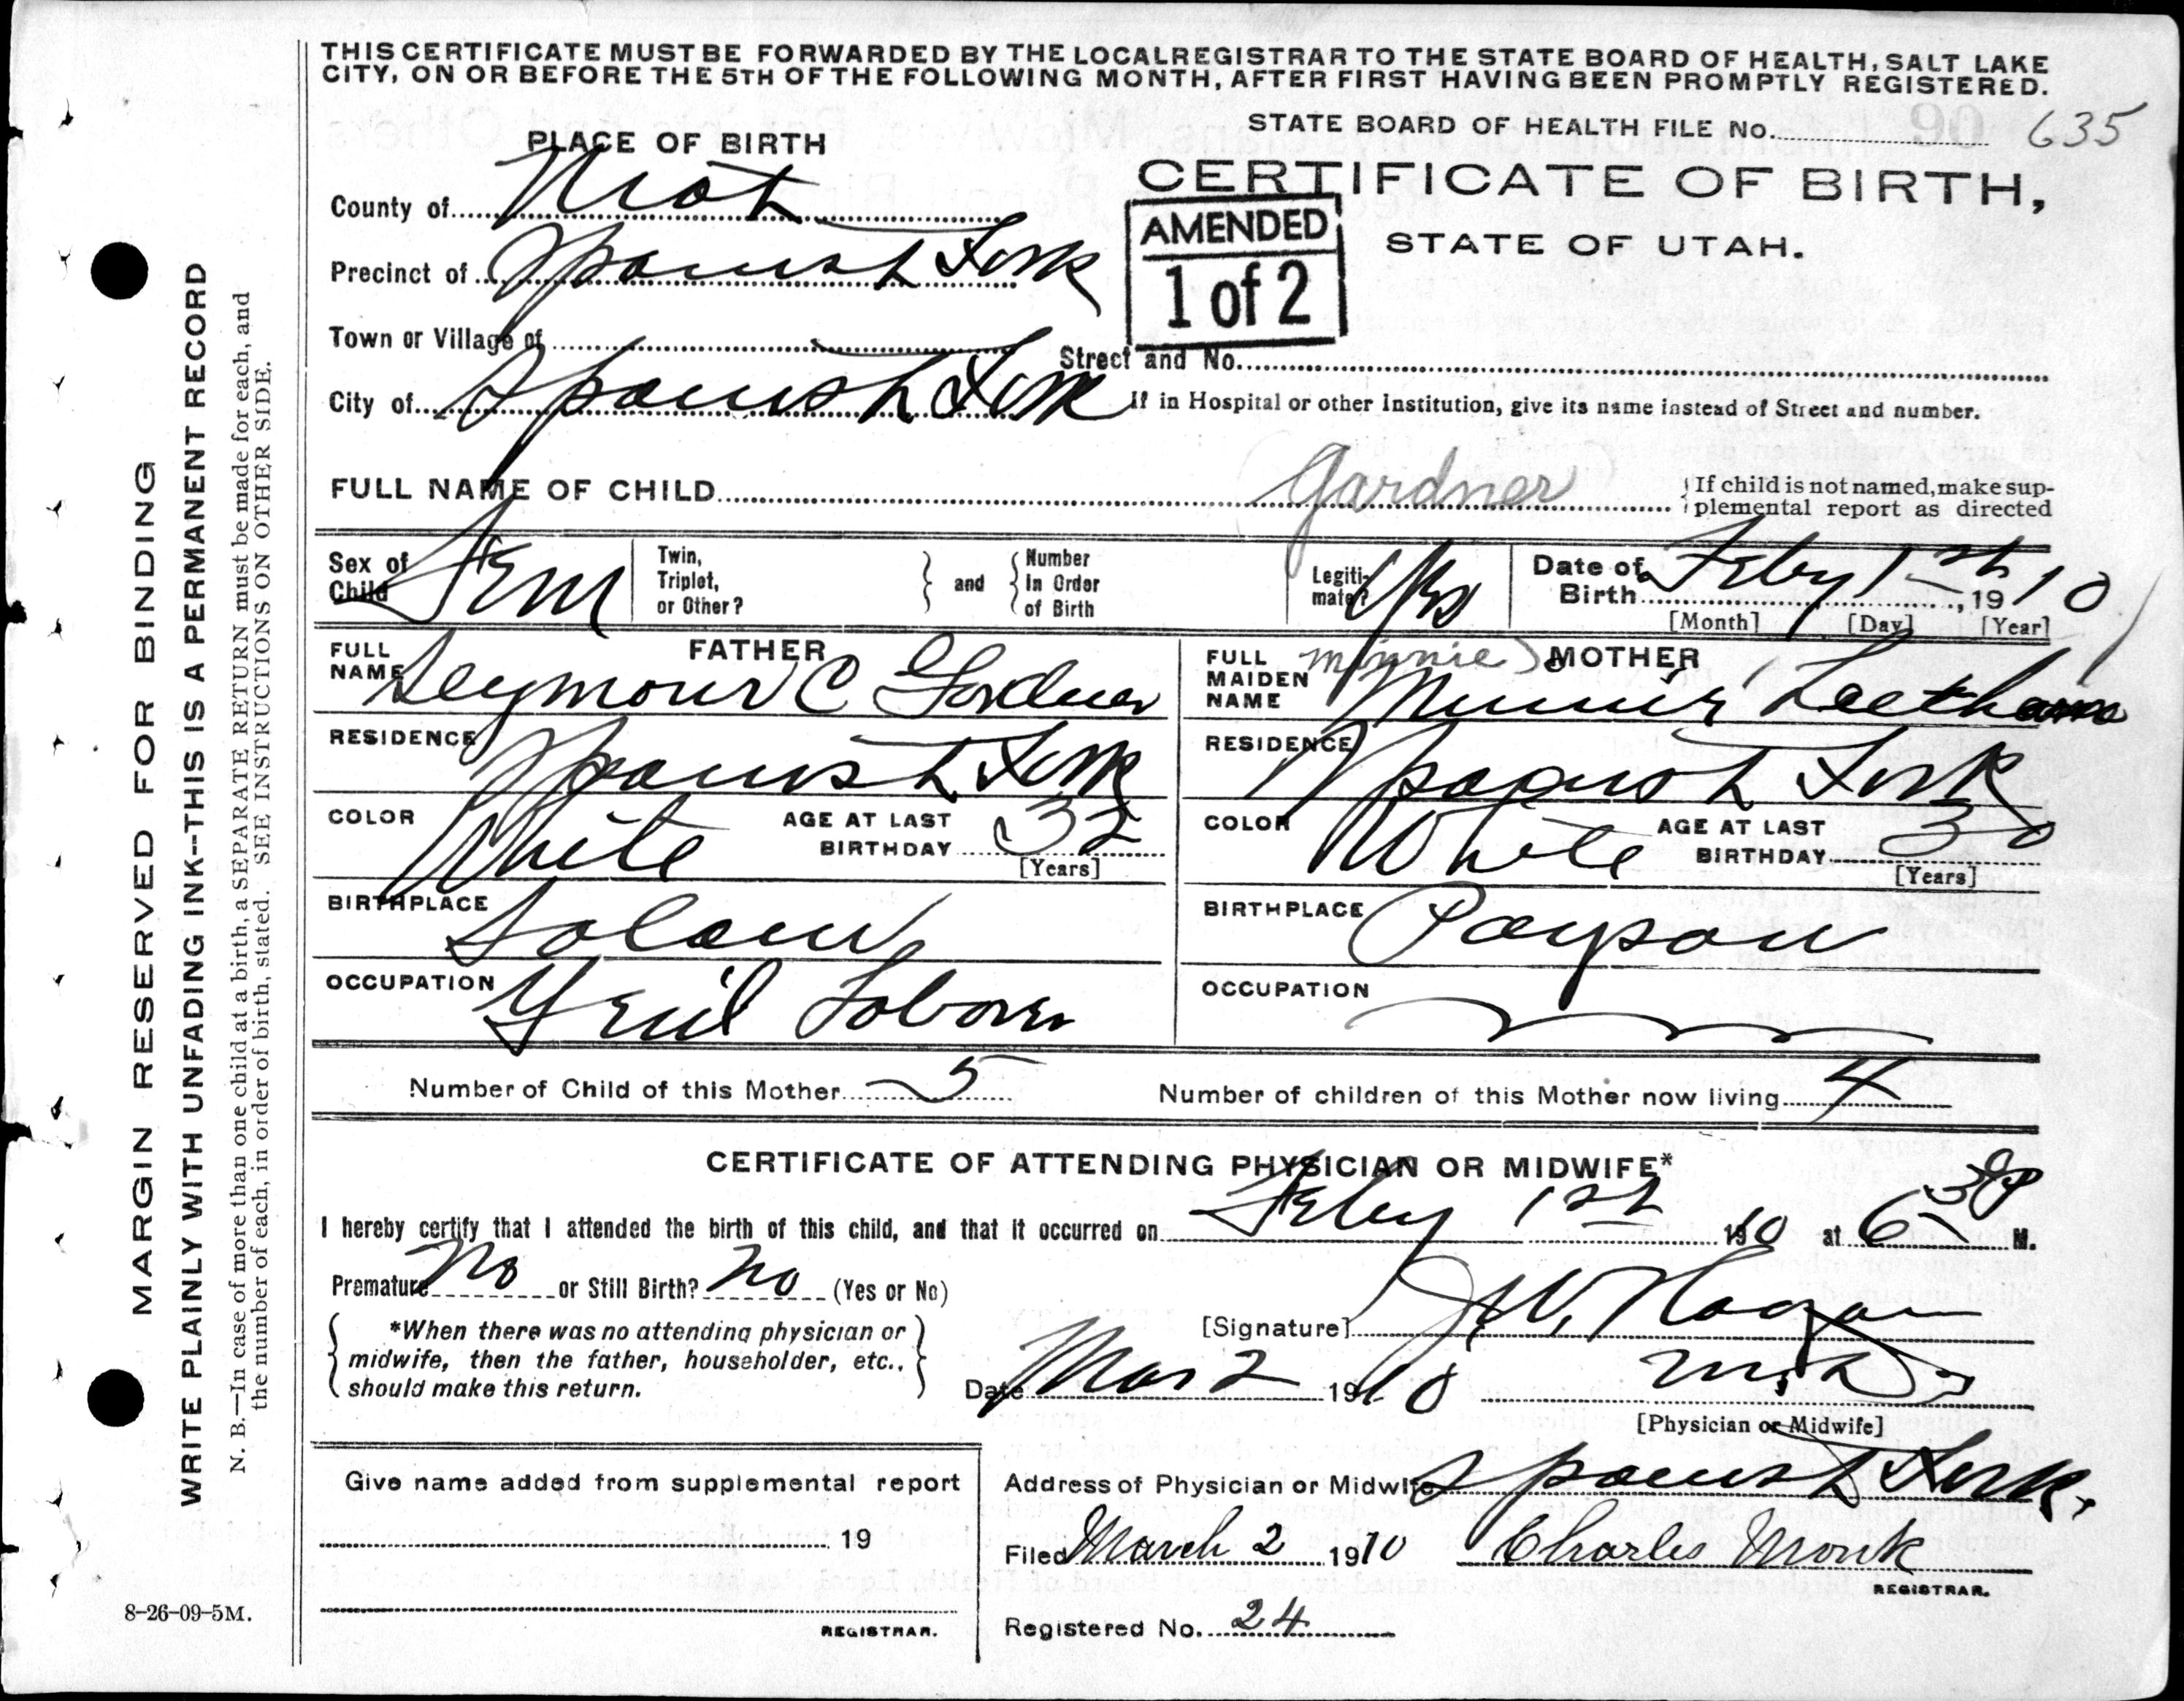 THIS CERTIFICATE MUST BE FORWARDED BY THE LOCAL REGISTRAR TO THE STATE BOARD OF HEALTH, SALT LAKE
CITY, ON OR BEFORE THE 5TH OF THE FOLLOWING MONTH, AFTER FIRST HAVING BEEN PROMPTLY REGISTERED.
STATE BOARD OF HEALTH FILE No. 90 635
PLACE OF BIRTH
CERTIFICATE OF BIRTH,
STATE OF UTAH.
AMENDED
1 of 2
County of Utah
Precinct of Spanish Fork
Town or Village of
Street and No.
City of Spanish Fork
If in Hospital or other Institution, give its name instead of Street and number.
FULL NAME OF CHILD Gardner
If child is not named, make sup-
plemental report as directed
Sex of Child Fem
Twin, Triplet, or Other?
and
Number In Order of Birth
Legiti-mate? Yes
Date of Birth Feby 1st, 1910
[Month] [Day] [Year]
FATHER
FULL NAME Seymour C Gardner
RESIDENCE Spanish Fork
COLOR White AGE AT LAST BIRTHDAY 32
[Years]
BIRTHPLACE Salem
OCCUPATION Laborer
MOTHER
Minnie
FULL MAIDEN NAME Minnie Leetham
RESIDENCE Spanish Fork
COLOR White AGE AT LAST BIRTHDAY 30
[Years]
BIRTHPLACE Payson
OCCUPATION
Number of Child of this Mother 5 Number of children of this Mother now living 4
CERTIFICATE OF ATTENDING PHYSICIAN OR MIDWIFE*
I hereby certify that I attended the birth of this child, and that it occurred on Feby 1st 1910 at 6 30 P M.
Premature No or Still Birth? No (Yes or No)
*When there was no attending physician or
midwife, then the father, householder, etc.,
should make this return.
[Signature] J.W. Hagan
Date Mar 2 1910 M.D.
[Physician or Midwife]
Give name added from supplemental report
19
REGISTRAR.
Address of Physician or Midwife Spanish Fork.
Filed March 2 1910 Charles Monk
REGISTRAR.
Registered No. 24
8-26-09-5M.
MARGIN RESERVED FOR BINDING
WRITE PLAINLY WITH UNFADING INK--THIS IS A PERMANENT RECORD
N. B.—In case of more than one child at a birth, a SEPARATE RETURN must be made for each, and
the number of each, in order of birth, stated. SEE INSTRUCTIONS ON OTHER SIDE.